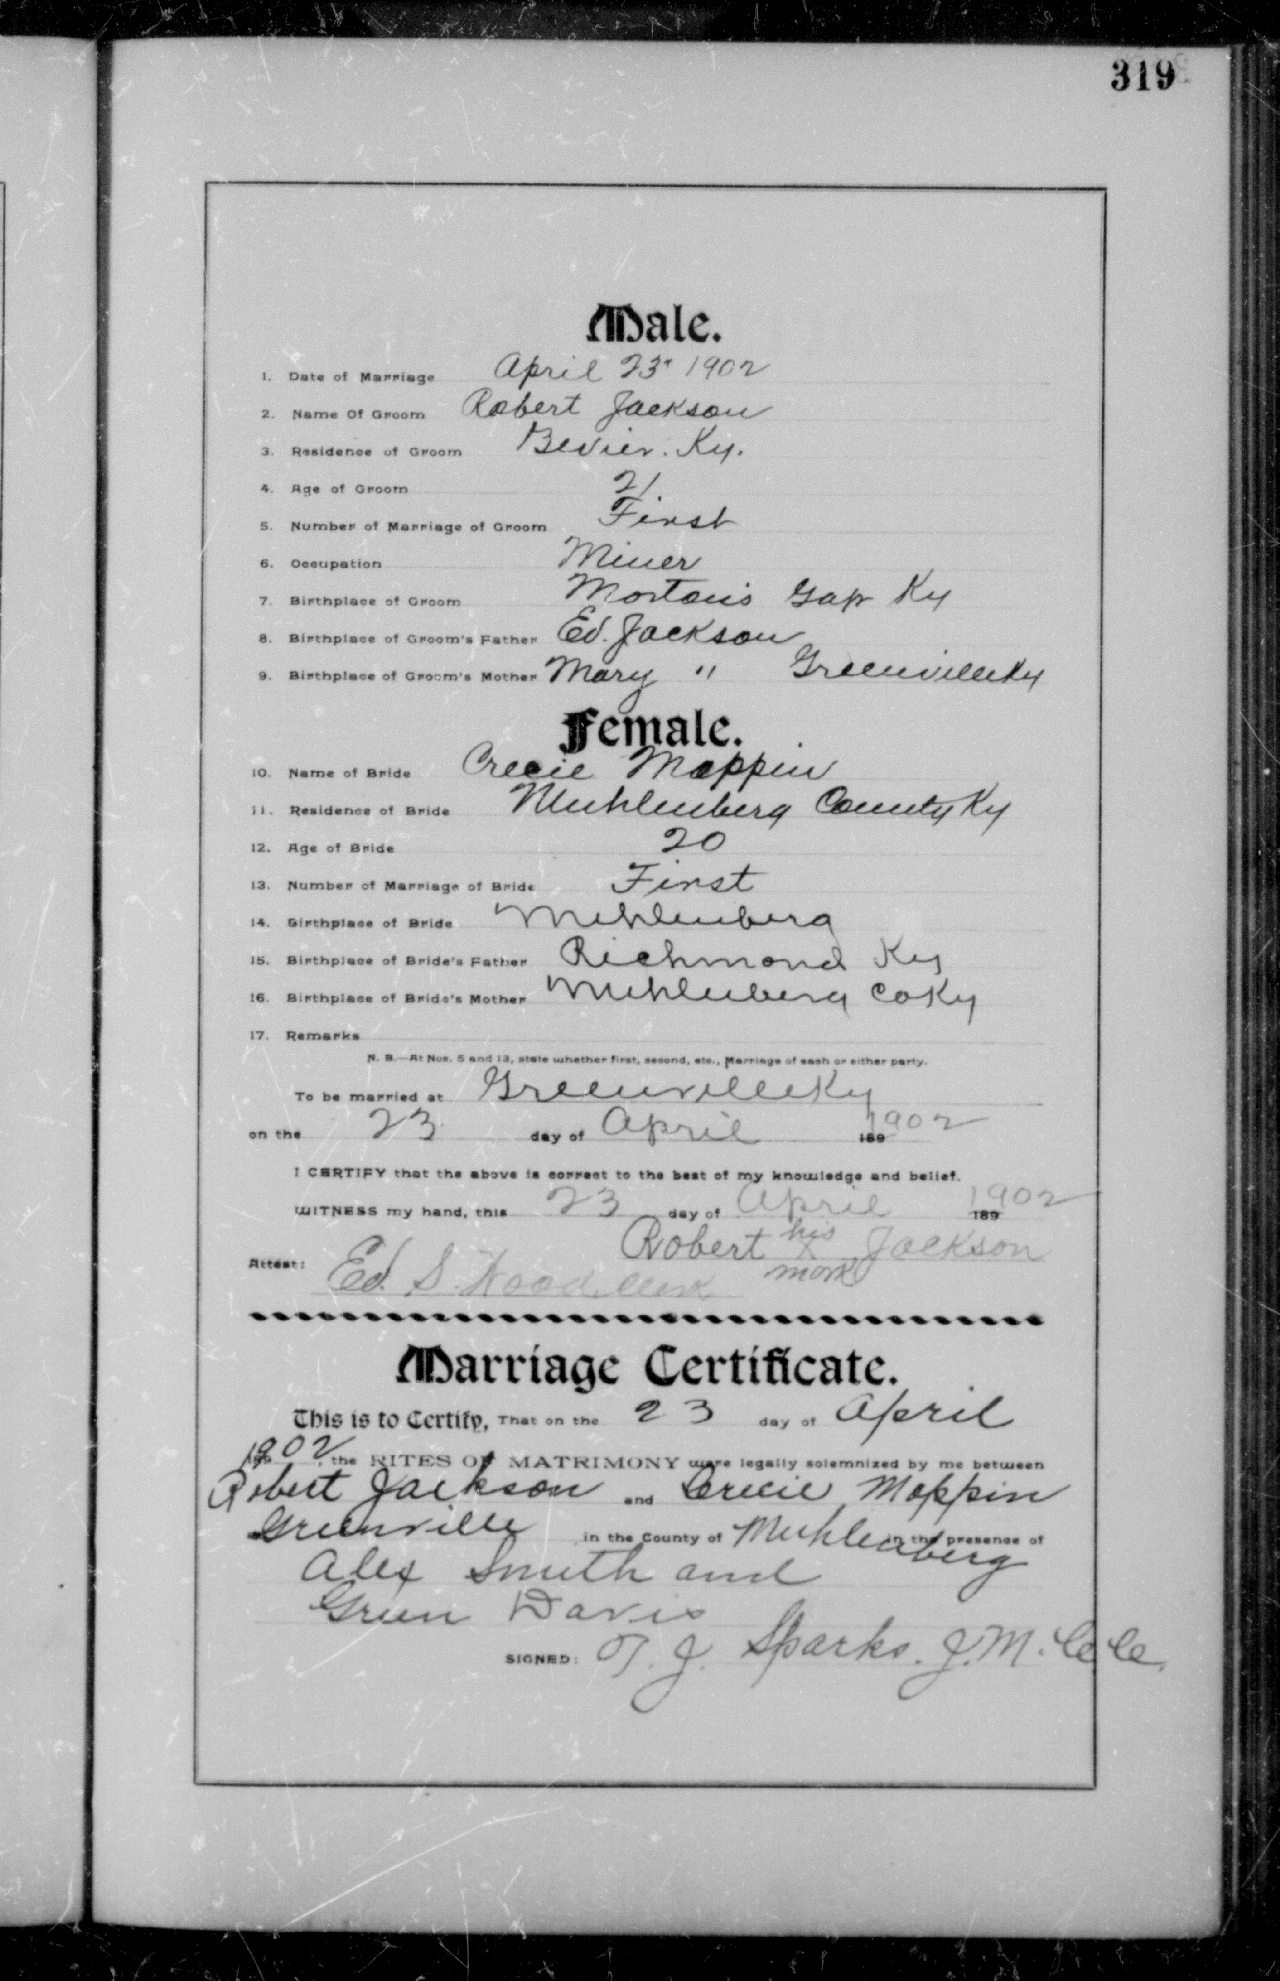 319
Male.
1. Date of Marriage April 23" 1902
2. Name Of Groom Robert Jackson
3. Residence of Groom Bevier. Ky.
4. Age of Groom 21
5. Number of Marriage of Groom First
6. Occupation Miner
7. Birthplace of Groom Morton's Gap Ky
8. Birthplace of Groom's Father Ed. Jackson
9. Birthplace of Groom's Mother Mary " Greenville Ky
Female.
10. Name of Bride Crecie Moppin
11. Residence of Bride Muhlenberg County Ky
12. Age of Bride 20
13. Number of Marriage of Bride First
14. Birthplace of Bride Muhlenberg
15. Birthplace of Bride's Father Richmond Ky
16. Birthplace of Bride's Mother Muhlenberg Co Ky
17. Remarks
N. B.—At Nos. 5 and 13, state whether first, second, etc., Marriage of each or either party.
To be married at Greenville Ky
on the 23 day of April 1902
I CERTIFY that the above is correct to the best of my knowledge and belief.
WITNESS my hand, this 23 day of April 1902 189
Robert his X mark Jackson
Attest: Ed. S. Wood, Clerk
Marriage Certificate.
This is to Certify, That on the 23 day of April
1902, the RITES OF MATRIMONY were legally solemnized by me between
Robert Jackson and Crecie Moppin
Greenville in the County of Muhlenberg in the presence of
Alex Smith and
Green Davis
SIGNED: T. J. Sparks. J. M. C. C.